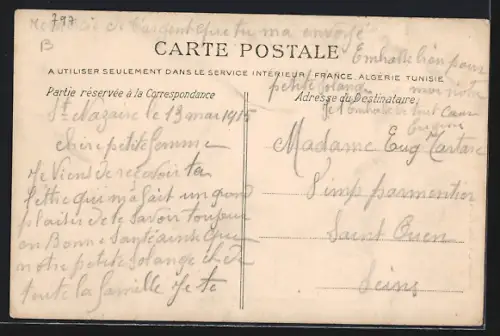 797
B
de l'argent que tu ma envoyé
CARTE POSTALE
A UTILISER SEULEMENT DANS LE SERVICE INTÉRIEUR (FRANCE, ALGÉRIE TUNISIE
Partie réservée à la Correspondance
St Nazaire le 13 mai 1915
Chire petite femme
Je Viens de recevoir ta
lettre qui m'a fait un grand
plaisir de te savoir toujour
en Bonne Santé ainsi que
notre petite Solange et de
toute la famille Je te
Embrasse bien pour
petite Solange
Adresse du Destinataire,
Je t Embrasse de tout Cœur
Eugène
Madame Eug
Saint Ouen
Seine